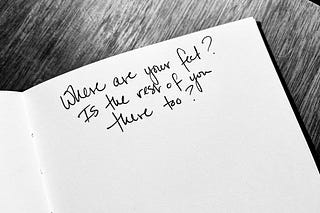 Where are your feet?
Is the rest of you
there too?